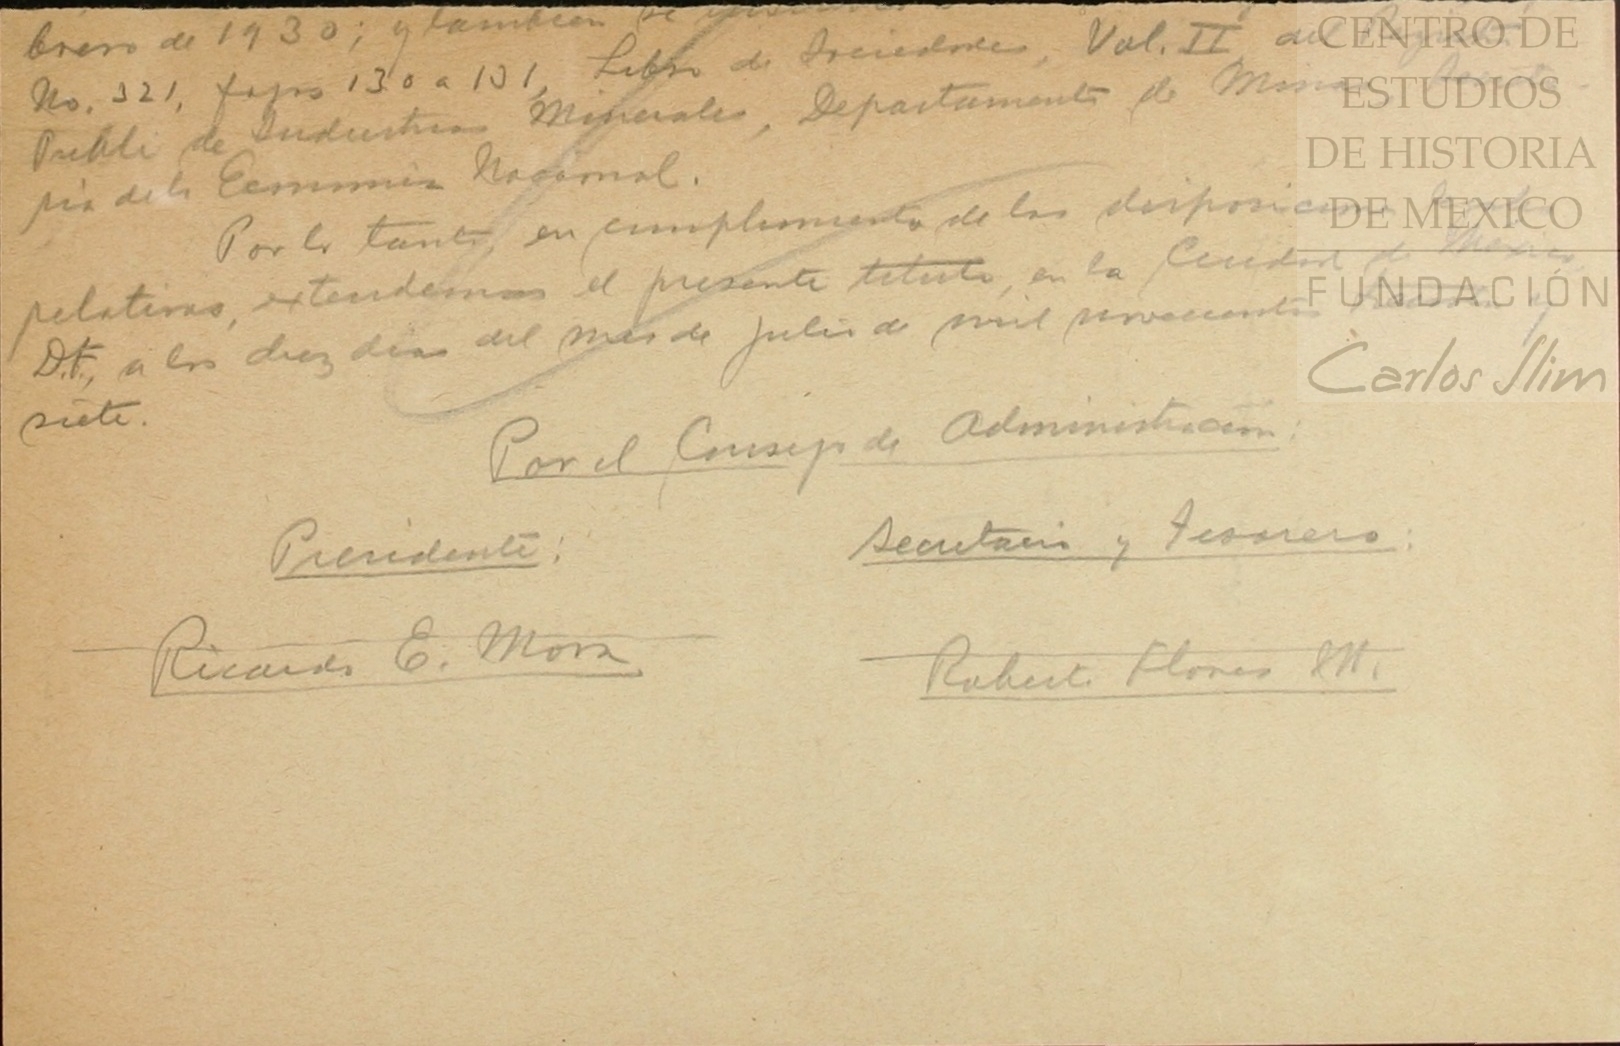 brero de 1930; y también se
No. 321, fojas 130 a 131, Libro de Sociedades, Vol. II del Registro
Público de Industrias Minerales, Departamento de Minas,
ría de la Economía Nacional.
Por lo tanto, en cumplimiento de las disposiciones
relativas, extendemos el presente título, en la Ciudad de México,
D.F., a los diez días del mes de julio de mil novecientos treinta y
siete.
Por el Consejo de Administración:
Presidente: Secretario y Tesorero:
Ricardo E. Mora Robert Flores M.
CENTRO DE
ESTUDIOS
DE HISTORIA
DE MEXICO
FUNDACIÓN
Carlos Slim